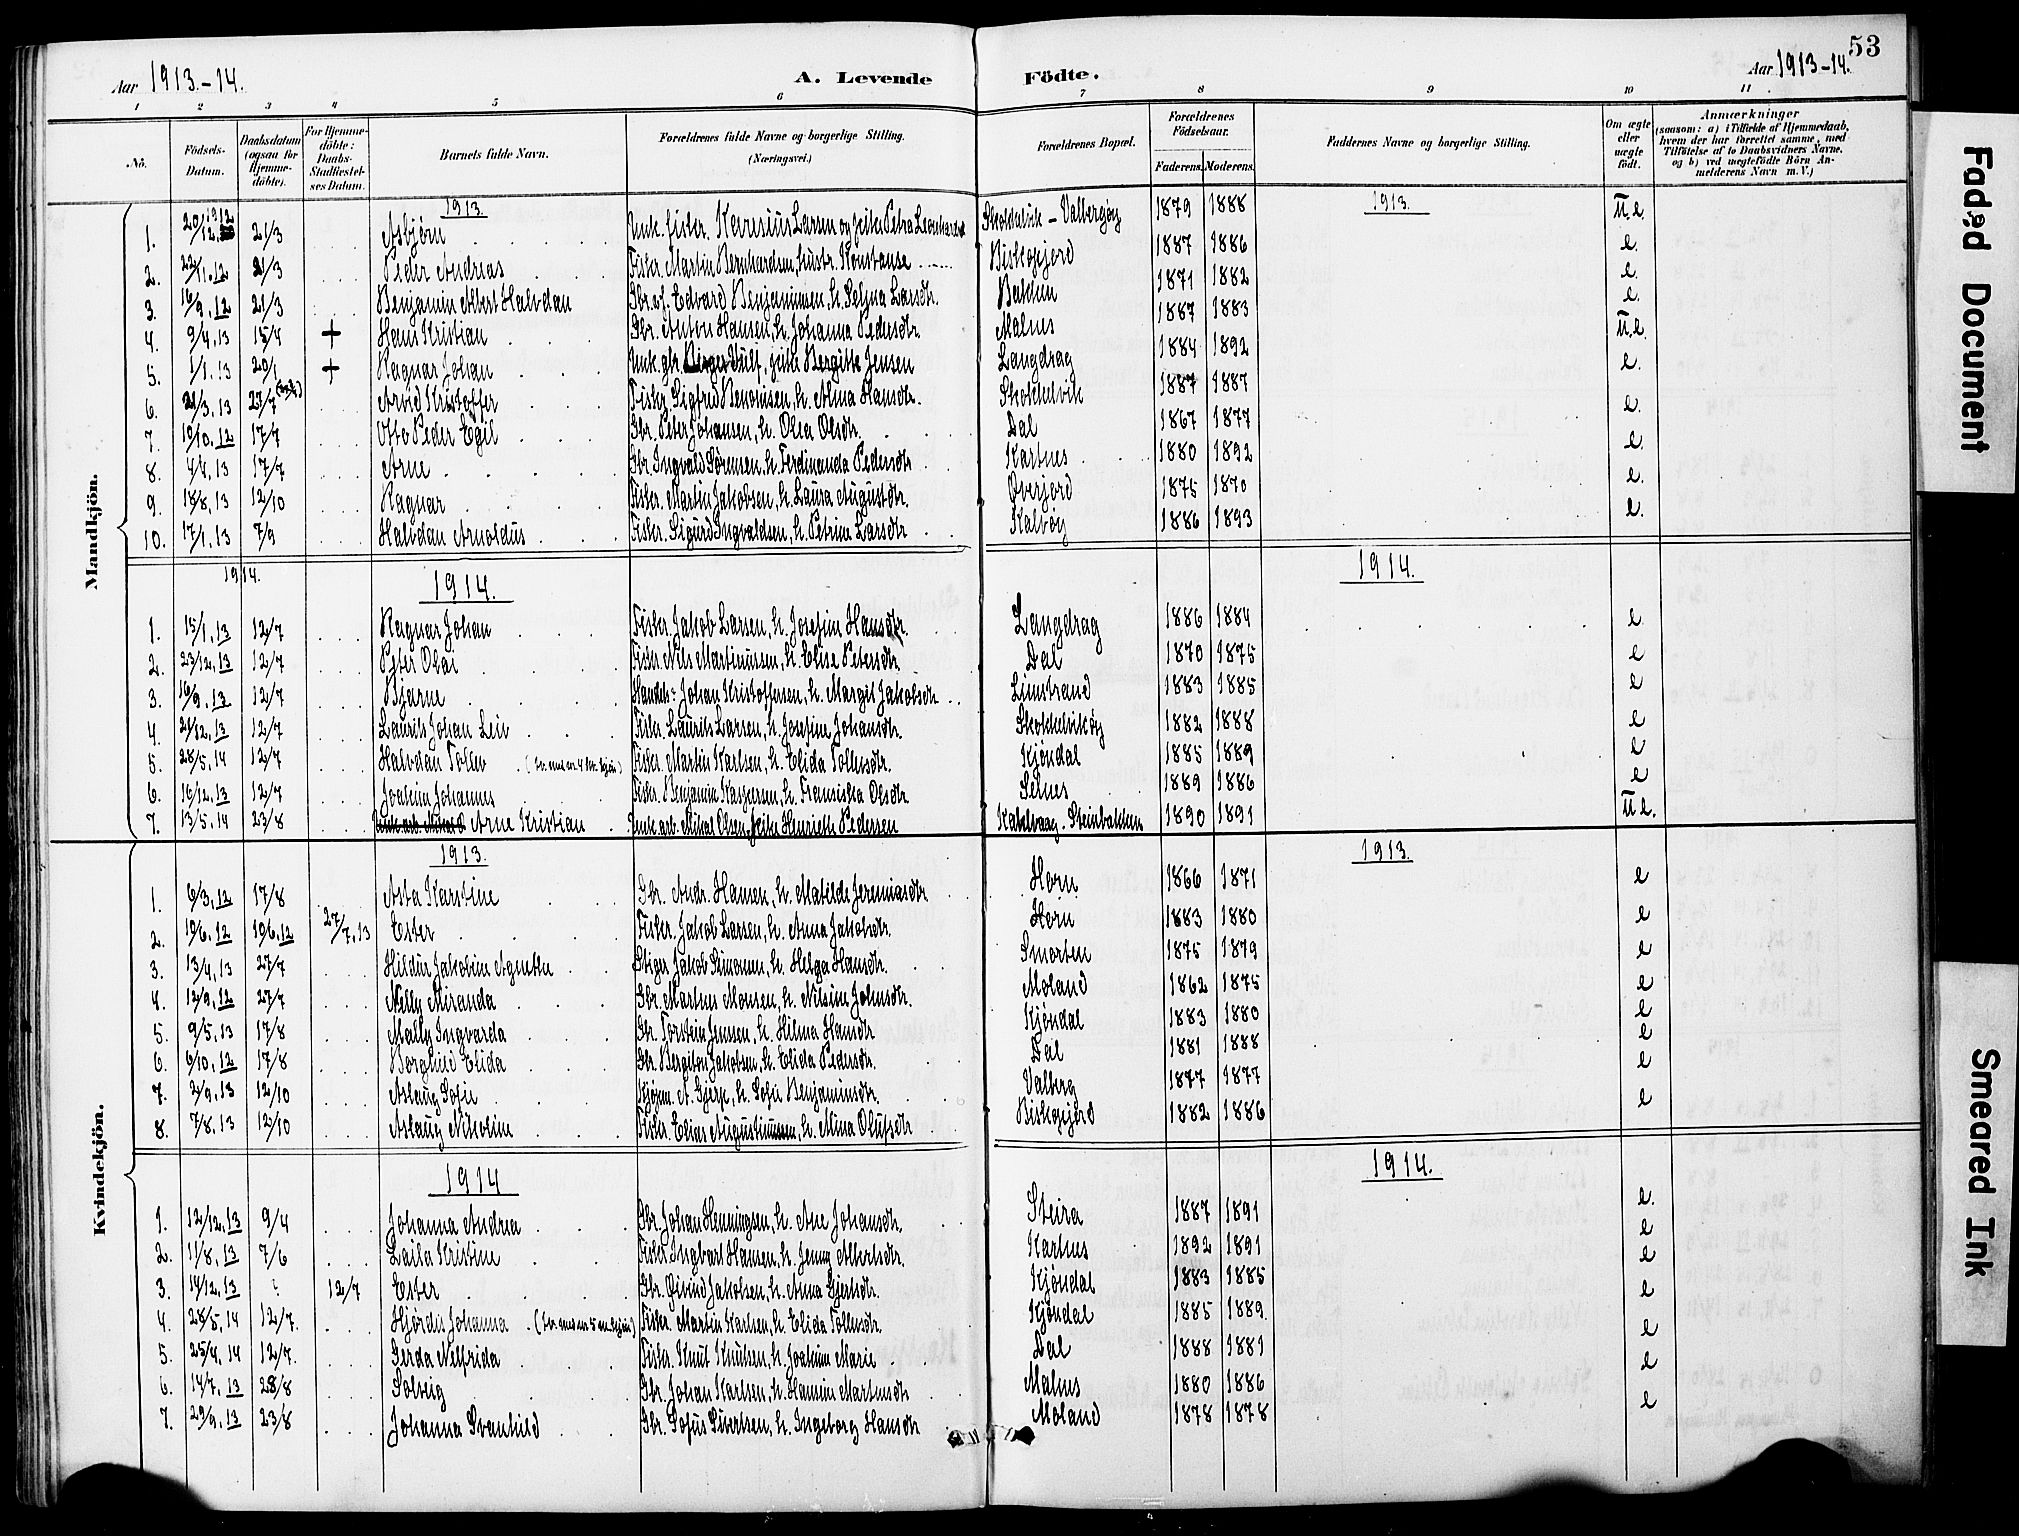 53
Aar 1913.-14. A. Levende Födte. Aar 1913-14.
1 2 3 4 5 6 7 8 9 10 11
No.
Födsels-Datum.
Daabsdatum (ogsaa for Hjemmedöbte).
For Hjemmedöbte: Daabs-Stadfæstelses Datum.
Barnets fulde Navn.
Forældrenes fulde Navne og borgerlige Stilling. (Næringsvei.)
Forældrenes Bopæl.
Forældrenes Födselsaar.
Faderens. Moderens.
Faddernes Navne og borgerlige Stilling.
Om ægte eller uægte födt.
Anmærkninger
(saasom: a) i Tilfælde af Hjemmedaab, hvem der har forrettet samme, med Tilföielse af to Daabsvidners Navne, og b) ved uægtefödte Börn Anmelderens Navn m. V.)
Mandkjön.
1913. 1913.
1. 21/3 Asbjörn Unk. fisker. Larsen og pike Petra 1879 1888 u.e.
2. 22/1.12 21/3 Peder Andreas Fisker. Martin Bernhardsen, hustr. Konstanse 1887 1886 e.
3. 16/9.12 21/3 Benjamin Albert Halvdan Gbr. Edvard Benjaminsen, h. Larsdtr. 1871 1882 e.
4. 9/4.13 15/4 + Hans Kristian Gbr. Anton Hansen, h. Johanna Pedersdtr. Malnes 1887 1883 e.
5. 1/1.13 20/1 + Ragnar Johan Unk. gbr. pike Bergitte Jensen Langdrag 1884 1892 u.e.
6. 21/3.13 27/7 Arvid Kristoffer Fisker Sigfred h. Alma Hansdtr. 1887 1887 e.
7. 19/10.12 17/7 Otto Peder Egil Gbr. Peter Johansen, h. Olea Olsdtr. Dal 1867 1877 e.
8. 4/4.13 17/7 Arne Gbr. Ingvald Sörensen, h. Ferdinanda Pedersdtr. Kartnes 1880 1892 e.
9. 18/8.13 12/10 Ragnar Fisker. Martin Jakobsen, h. Laura Augustdtr. 1875 1870 e.
10. 17/1.13 7/9 Halvdan Arnoldus Fisker. Sigurd Ingvaldsen, h. Petrine Larsdtr. Kalvöy 1886 1893 e.
1914. 1914. 1914.
1. 15/1.13 12/7 Ragnar Johan Fisker. Jakob Larsen, h. Josefine Hansdtr. Langdrag 1886 1884 e
2. 23/12.13 12/7 Peter Olai Fisker. Nils Martinussen, h. Elise Petersdtr. Dal 1870 1875 e
3. 16/9.13 12/7 Bjarne Handels: Johan Kristoffersen, h. Margit Jakobsdtr. Limstrand 1883 1885 e
4. 21/12.13 12/7 Laurits Johan Leiv Fisker. Laurits Larsen, h. Josefine Johansdtr. 1882 1888 e
5. 28/5.14 12/7 Halvdan Fisker. Martin Karlsen, h. Elida Kjöndal 1885 1889 e
6. 16/12.13 12/7 Joakim Johannes Fisker. Benjamin Kaspersen, h. Fransiska Olsdtr. Selnes 1889 1886 e
7. 13/5.14 23/8 Arne Kristian Unk. arb. Mikal Olsen, pike Henriette Pedersen Steinbakken 1890 1891 u.e.
Kvindekjön.
1913. 1913.
1. 6/3.12 17/8 Asta Karstine Gbr. Andr. Hansen, h. Matilde Jeremiasdtr. Horn 1866 1871 e
2. 19/6.12 19/6.12 27/7.13 Ester Fisker. Jakob Larsen, h. Anna Jakobsdtr. Horn 1883 1880 e
3. 13/4.13 27/7 Hildur Jakobine Agnethe Jakob Simonsen, h. Helga Hansdtr. Smorten 1875 1879 e
4. 12/9.12 27/7 Nelly Miranda Gbr. Martnes Monsen, h. Nilsine Johnsdtr. Moland 1862 1875 e
5. 9/5.13 17/8 Mally Ingvarda Gbr. Torstein Jensen, h. Hilma Hansdtr. Kjöndal 1883 1880 e
6. 6/10.12 17/8 Borghild Elida Gbr. Bergiton Jakobsen, h. Elida Pedersdtr. Dal 1881 1888 e
7. 2/9.13 12/10 Aslaug Sofie h. Sofie Benjaminsdtr. Valberg 1877 1877 e
8. 7/8.13 12/10 Aslaug Nikoline Fisker. Elias h. Mina Olufsdtr. 1882 1886 e
1914 1914.
1. 12/12.13 9/4 Johanna Andrea Gbr. Johan Henningsen, h. Ane Johansdtr. Steira 1887 1891 e.
2. 11/8.13 7/6 Laila Kristine Fisker Ingvart Hansen, h. Jenny Albertsdtr. Kartnes 1892 1891 e
3. 14/12.13 12/7 Ester Gbr. Öivind Jakobsen, h. Anna Gjertsdtr. Kjöndal 1883 1885 e
4. 28/5.14 12/7. Hjördis Johanna Fisker. Martin Karlsen, h. Elida Kjöndal 1885 1889. e
5. 25/4.14 12/7. Gerda Nelfrida Fisker. Knut Knutsen, h. Joakime Marie Dal 1888 1881 e
6. 14/7.13 28/8 Solveig Gbr. Johan Karlsen, h. Hansine Martinsdtr. Malnes 1880 1886 e
7. 29/9.13 23/8 Johanna Svanhild Gbr. Sofus Sivertsen, h. Ingeborg Hansdtr. Moland 1878 1878 e
Faded Document
Smeared Ink